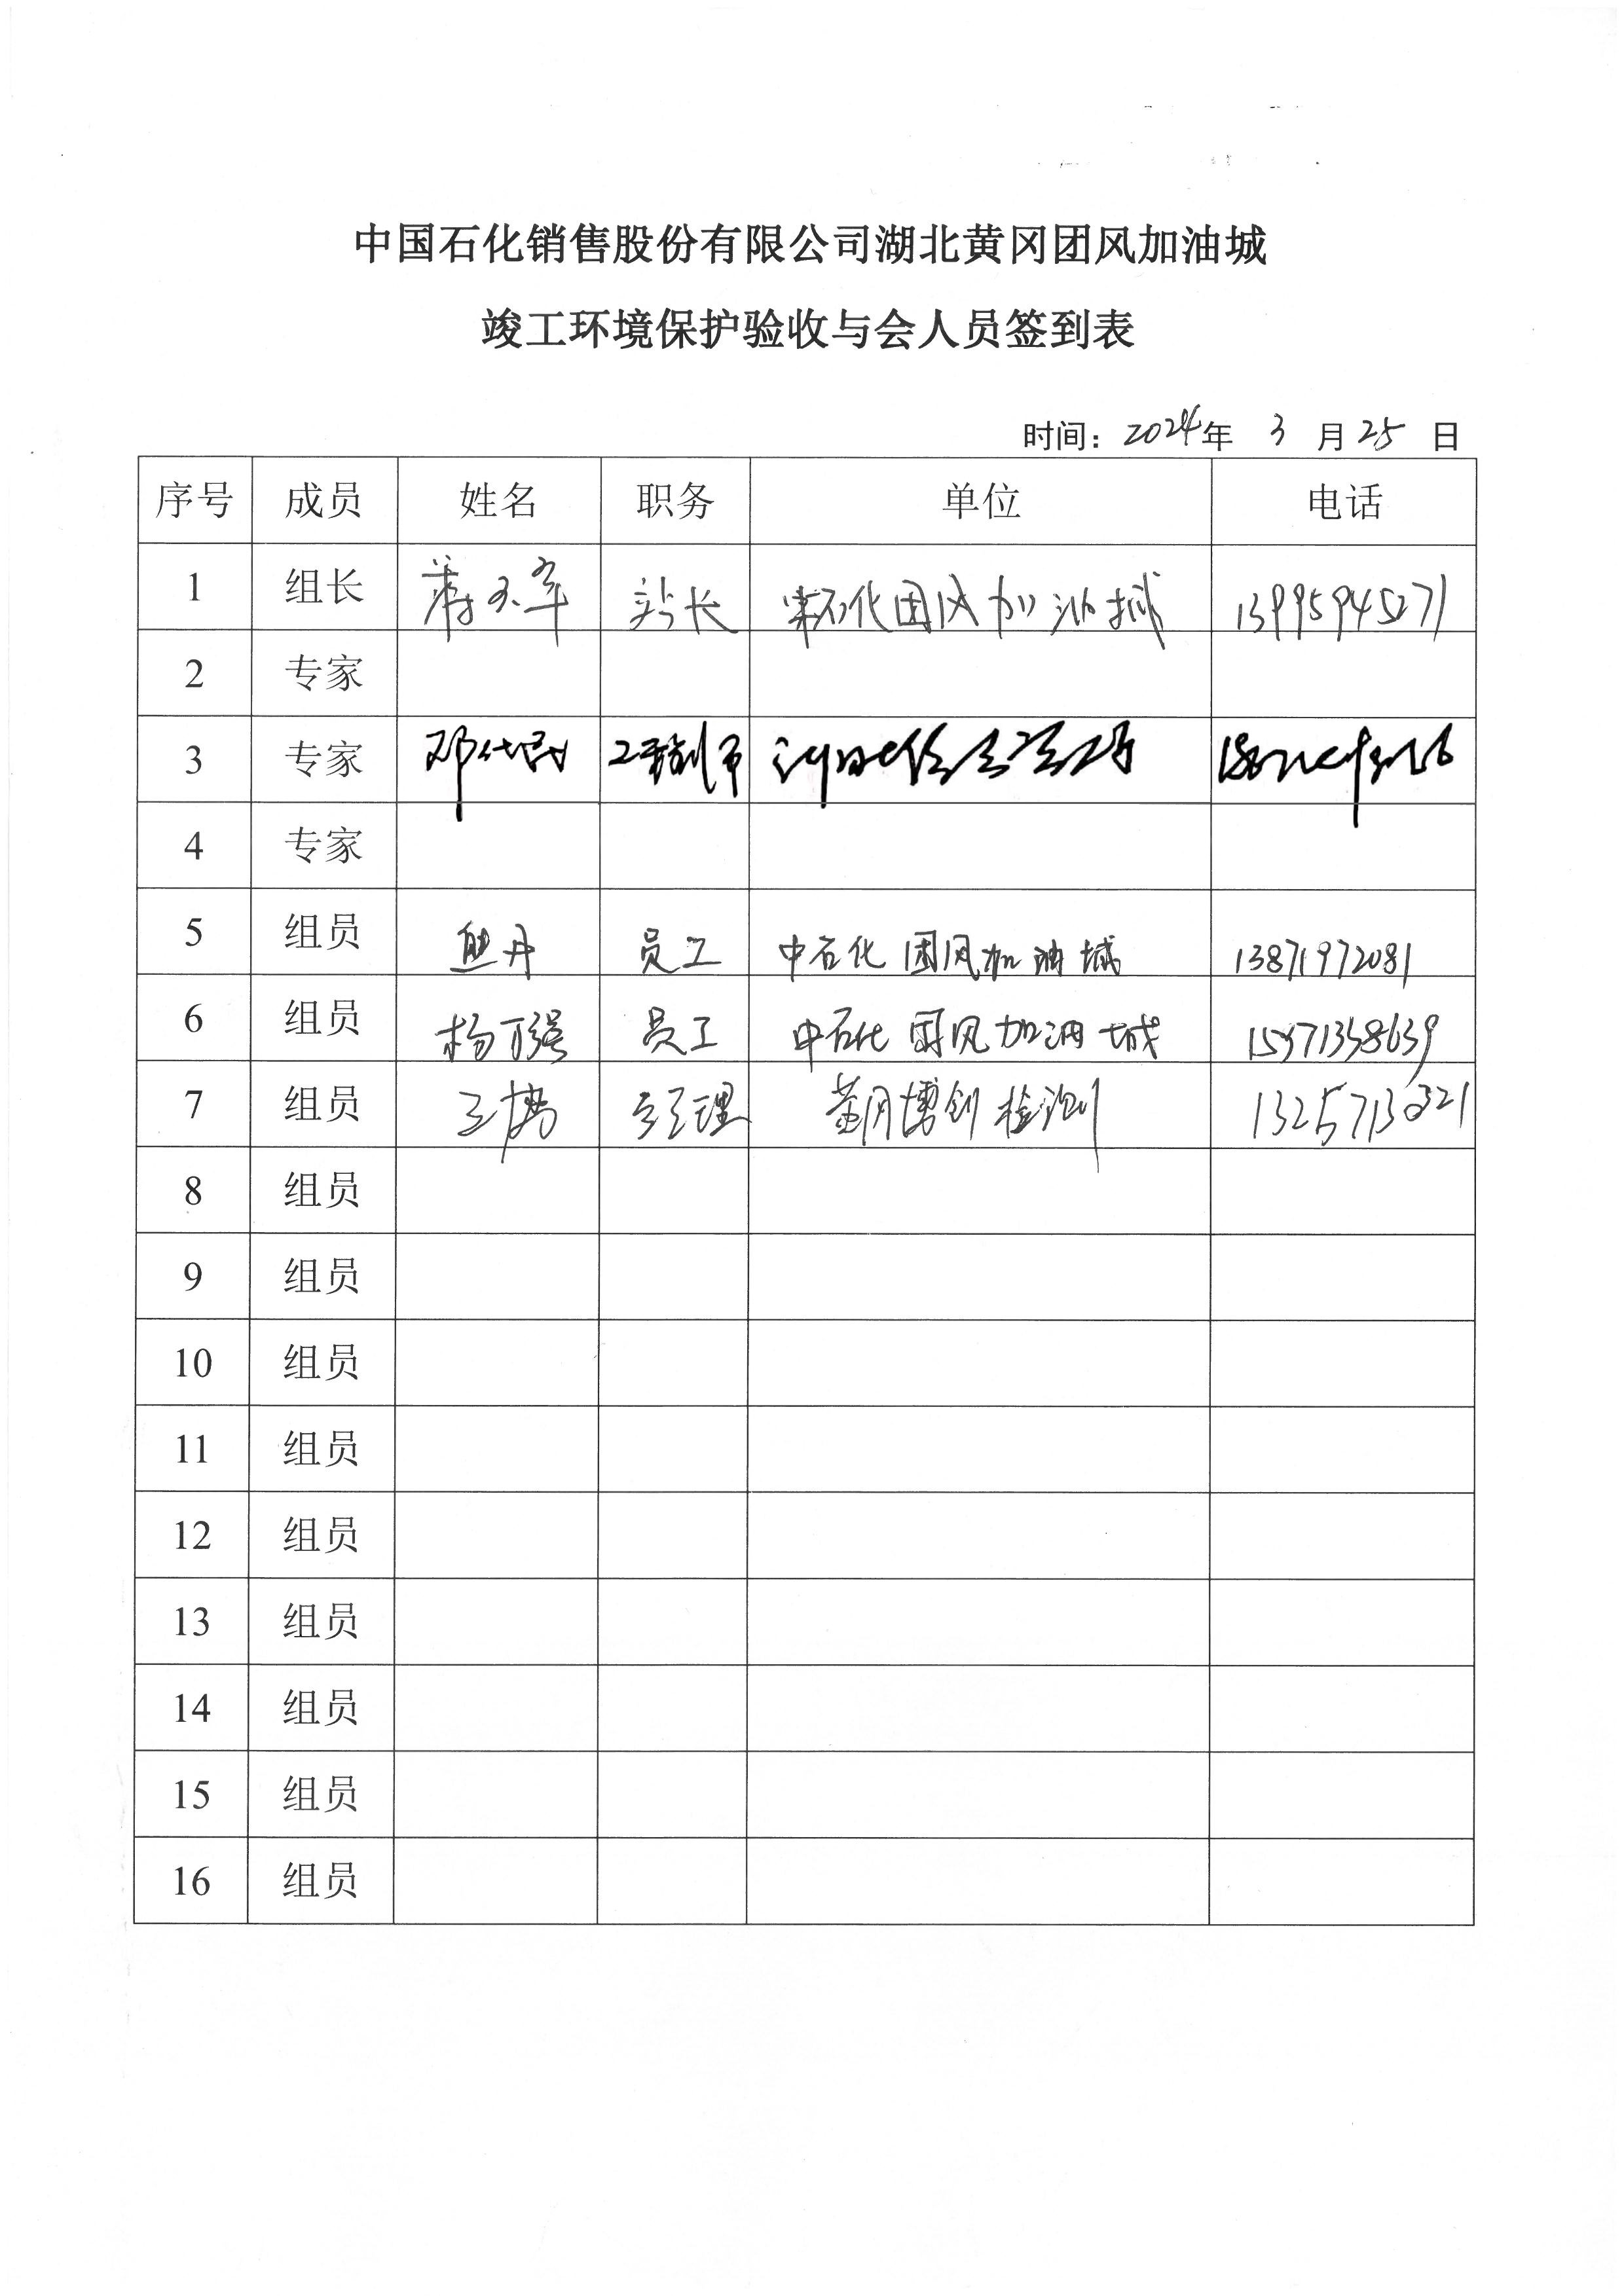 中国石化销售股份有限公司湖北黄冈团风加油城
竣工环境保护验收与会人员签到表
时间：2024年 3 月 25 日
序号 成员 姓名 职务 单位 电话
1 组长 站长 石化团风加油城 13995945271
2 专家
3 专家 邓
4 专家
5 组员 熊丹 员工 中石化团风加油城 13871972081
6 组员 杨万强 员工 中石化团风加油城
7 组员 王博 总经理 黄冈博创检测
8 组员
9 组员
10 组员
11 组员
12 组员
13 组员
14 组员
15 组员
16 组员